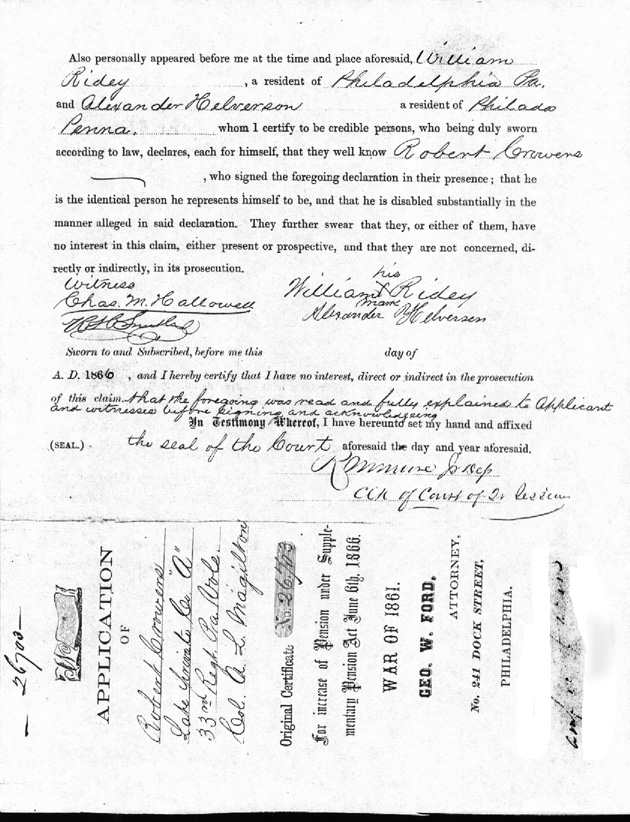 Also personally appeared before me at the time and place aforesaid, William
Ridey, a resident of Philadelphia Pa.
and Alexander Helverson a resident of Philada
Penna. whom I certify to be credible persons, who being duly sworn
according to law, declares, each for himself, that they well know Robert Crowens
, who signed the foregoing declaration in their presence; that he
is the identical person he represents himself to be, and that he is disabled substantially in the
manner alleged in said declaration. They further swear that they, or either of them, have
no interest in this claim, either present or prospective, and that they are not concerned, di-
rectly or indirectly, in its prosecution.
Witness
Chas. M. Hallowell
his
William X Ridey
mark
Alexander Helverson
Sworn to and Subscribed, before me this day of
A. D. 1866, and I hereby certify that I have no interest, direct or indirect in the prosecution
of this claim. that the foregoing was read and fully explained to Applicant
and witnesses before signing and acknowledging
In Testimony Whereof, I have hereunto set my hand and affixed
(SEAL.) the seal of the Court aforesaid the day and year aforesaid.
Clk of Court of Qr Sessions
26703
APPLICATION
OF
Robert Crowens
Late Private Co "A"
33rd Regt Pa Vols.
Col. A. L. Magilton
Original Certificate No. 26,703
For increase of Pension under Supple-
mentary Pension Act June 6th, 1866.
WAR OF 1861.
GEO. W. FORD,
ATTORNEY,
No. 241 DOCK STREET,
PHILADELPHIA.